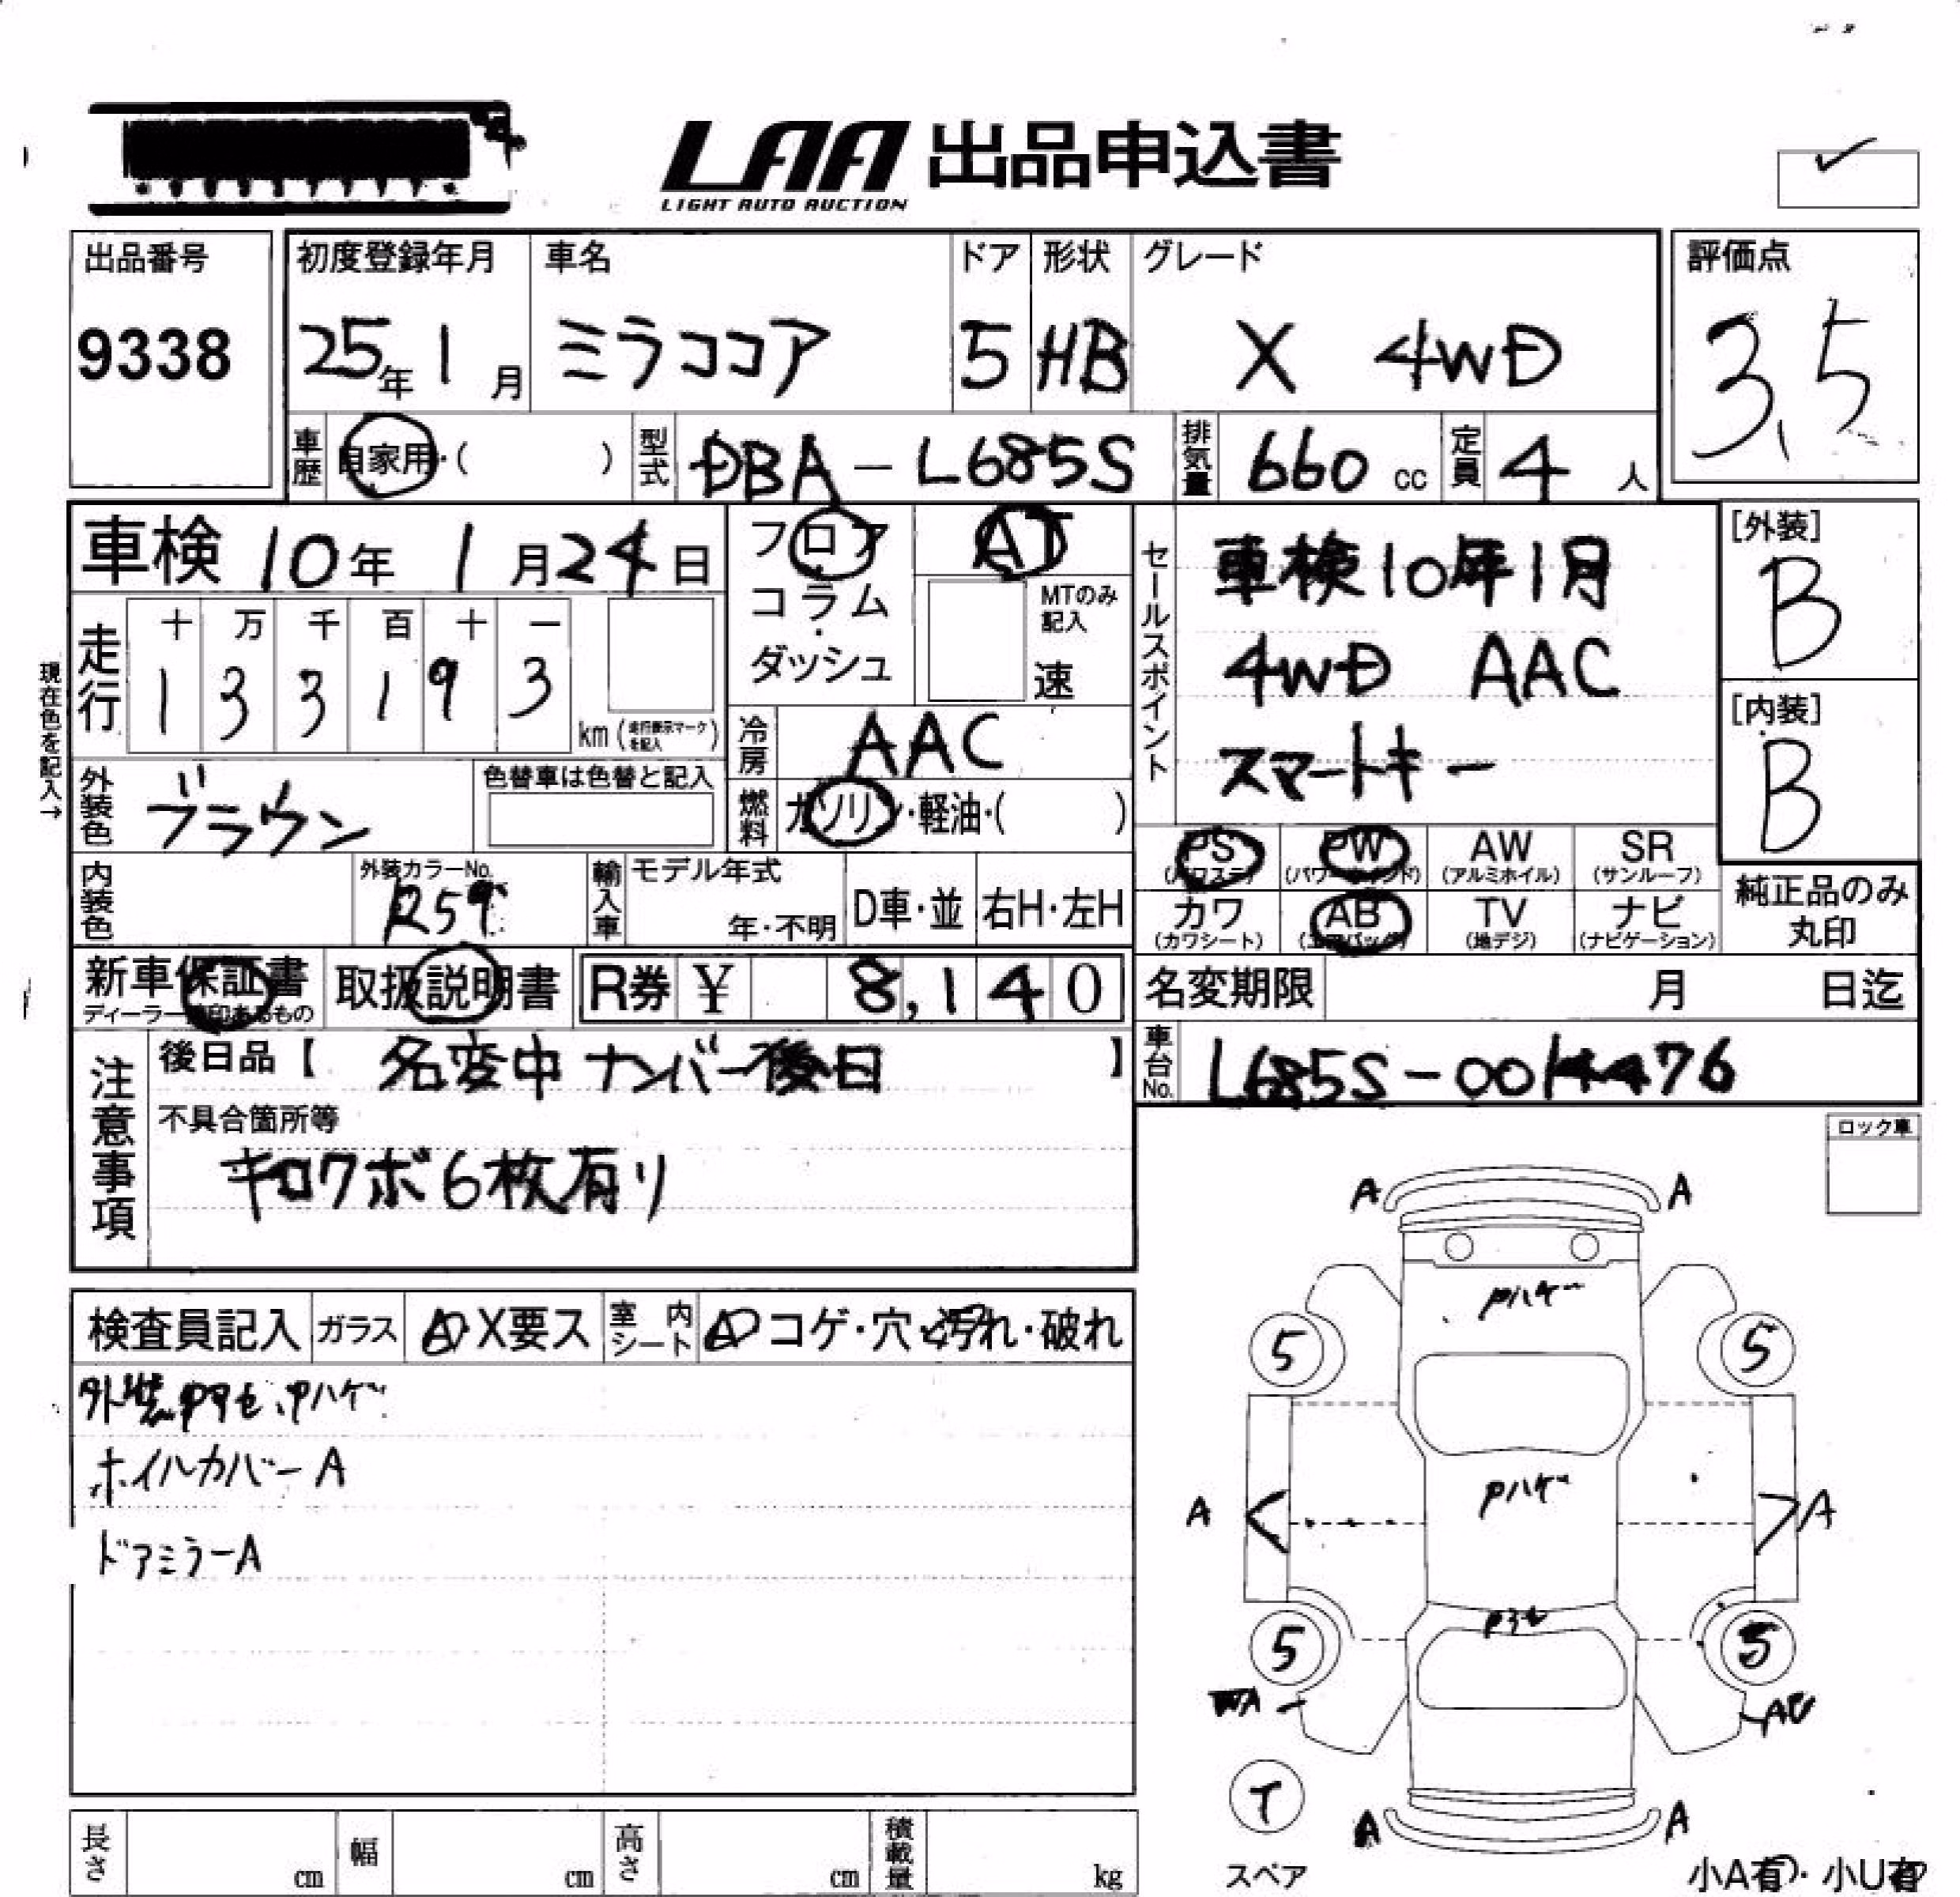 LAA 出品申込書
LIGHT AUTO AUCTION
出品番号
9338
初度登録年月
25年 1月
車名
ミラココア
ドア
5
形状
HB
グレード
X 4WD
評価点
3.5
車歴 自家用・( )
型式 DBA-L685S
排気量 660 cc
定員 4 人
車検 10年 1月24日
フロア
コラム
・
ダッシュ
AT
MTのみ記入
速
セールスポイント
車検10年1月
4WD AAC
スマートキー
[外装]
B
[内装]
B
現在色を記入→
走行
十 万 千 百 十 一
1 3 3 1 9 3
km (走行表示マークを記入)
冷房 AAC
外装色 ブラウン
色替車は色替と記入
燃料 ガソリン・軽油・( )
PS (パワステ)
PW (パワーウインド)
AW (アルミホイル)
SR (サンルーフ)
カワ (カワシート)
AB (エアバッグ)
TV (地デジ)
ナビ (ナビゲーション)
純正品のみ
丸印
内装色
外装カラーNo.
R59
輸入車
モデル年式
年・不明
D車・並
右H・左H
新車保証書
取扱説明書
R券 ¥ 8,140
名変期限 月 日迄
注意事項
後日品【 名変中 ナンバー後日 】
車台No. L685S-0014476
不具合箇所等
キロクボ6枚有り
ロック車
検査員記入
ガラス A・X要ス
室内シート A・コゲ・穴・汚れ・破れ
ホイルカバーA
ドアミラーA
A A
Pハゲ
5 5
Pハゲ
A A
5 5
T
スペア
A A
小A有・小U有
長さ cm
幅 cm
高さ cm
積載量 kg